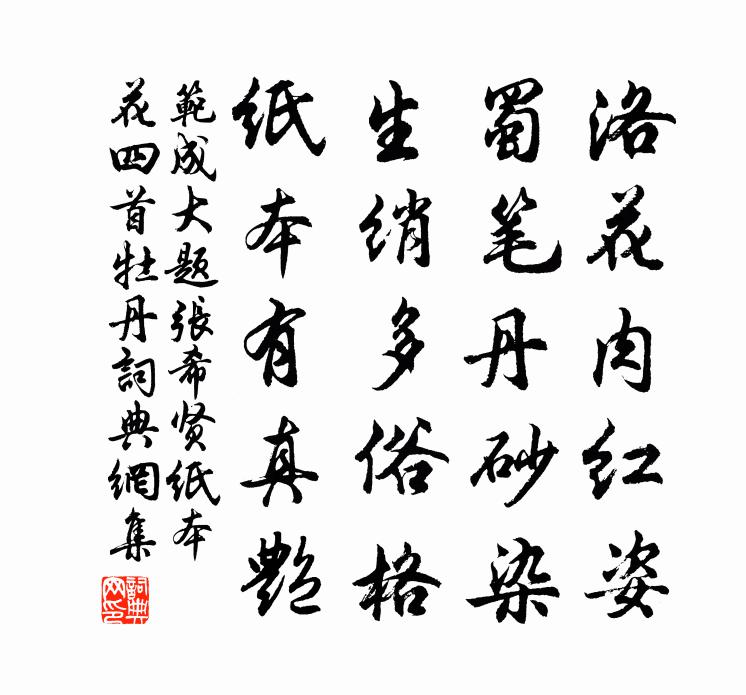 洛花肉红姿
蜀笔丹砂染
生绡多俗格
纸本有真艷
範成大题張希贤纸本
花四首牡丹詞典網集
詞典
网印